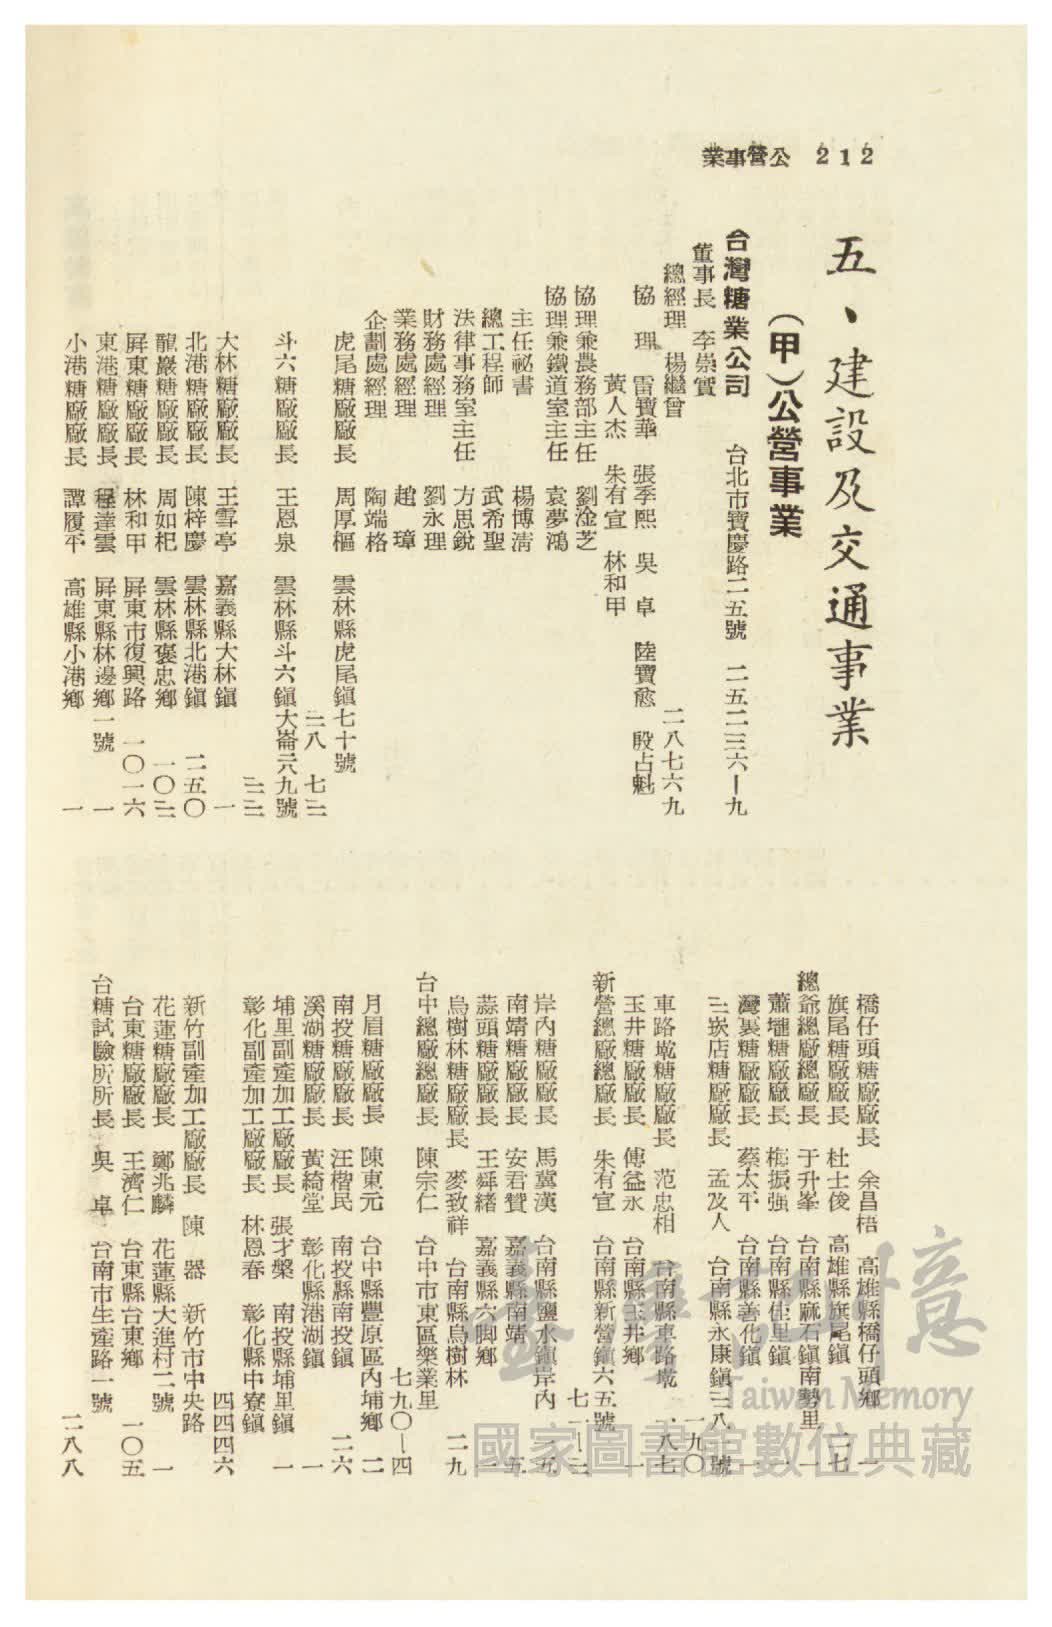 212 公營事業
五、建設及交通事業
（甲）公營事業
台灣糖業公司 台北市寶慶路二五號 二五二三六—九
董事長 李崇實
總經理 楊繼曾 二八七六九
協理 雷寶華 張季熙 吳卓 陸寶愈 殷占魁
黃人杰 朱有宣 林和甲
協理兼農務部主任 劉淦芝
協理兼鐵道室主任 袁夢鴻
主任祕書 楊博清
總工程師 武希聖
法律事務室主任 方思銳
財務處經理 劉永理
業務處經理 趙璋
企劃處經理 陶端格
虎尾糖廠廠長 周厚樞 雲林縣虎尾鎮七十號
三八 七三
斗六糖廠廠長 王恩泉 雲林縣斗六鎮大崙六九號
三三
大林糖廠廠長 王雪亭 嘉義縣大林鎮 一
北港糖廠廠長 陳梓慶 雲林縣北港鎮 二五〇
龍巖糖廠廠長 周如杞 雲林縣褒忠鄉 一〇三
屏東糖廠廠長 林和甲 屏東市復興路 一〇一六
東港糖廠廠長 程達雲 屏東縣林邊鄉一號 一
小港糖廠廠長 譚履平 高雄縣小港鄉 一
橋仔頭糖廠廠長 余昌梧 高雄縣橋仔頭鄉 一
旗尾糖廠廠長 杜士俊 高雄縣旗尾鎮 二七
總爺總廠總廠長 于升峯 台南縣麻石鎮南勢里 一
蕭壠糖廠廠長 梅振強 台南縣佳里鎮 一
灣裏糖廠廠長 蔡太平 台南縣善化鎮 一
三崁店糖廠廠長 孟及人 台南縣永康鎮三八號
一九〇
車路墘糖廠廠長 范忠相 台南縣車路墘 一八七
玉井糖廠廠長 傅益永 台南縣玉井鄉 一
新營總廠總廠長 朱有宣 台南縣新營鎮六五號
七一—三
岸內糖廠廠長 馬冀漢 台南縣鹽水鎮岸內 五
南靖糖廠廠長 安君贊 嘉義縣南靖 五
蒜頭糖廠廠長 王舜緒 嘉義縣六脚鄉 一
烏樹林糖廠廠長 麥致祥 台南縣烏樹林 二九
台中總廠總廠長 陳宗仁 台中市東區樂業里
七九〇—四
月眉糖廠廠長 陳東元 台中縣豐原區內埔鄉 二
南投糖廠廠長 汪楷民 南投縣南投鎮 二六
溪湖糖廠廠長 黃綺堂 彰化縣港湖鎮 一
埔里副產加工廠廠長 張才槃 南投縣埔里鎮 一
彰化副產加工廠廠長 林恩春 彰化縣中寮鎮
四四四六
新竹副產加工廠廠長 陳器 新竹市中央路
花蓮糖廠廠長 鄭兆麟 花蓮縣大進村二號 一
台東糖廠廠長 王濟仁 台東縣台東鄉 一〇五
台糖試驗所所長 吳卓 台南市生產路一號
二八八
臺灣記憶
Taiwan Memory
國家圖書館數位典藏